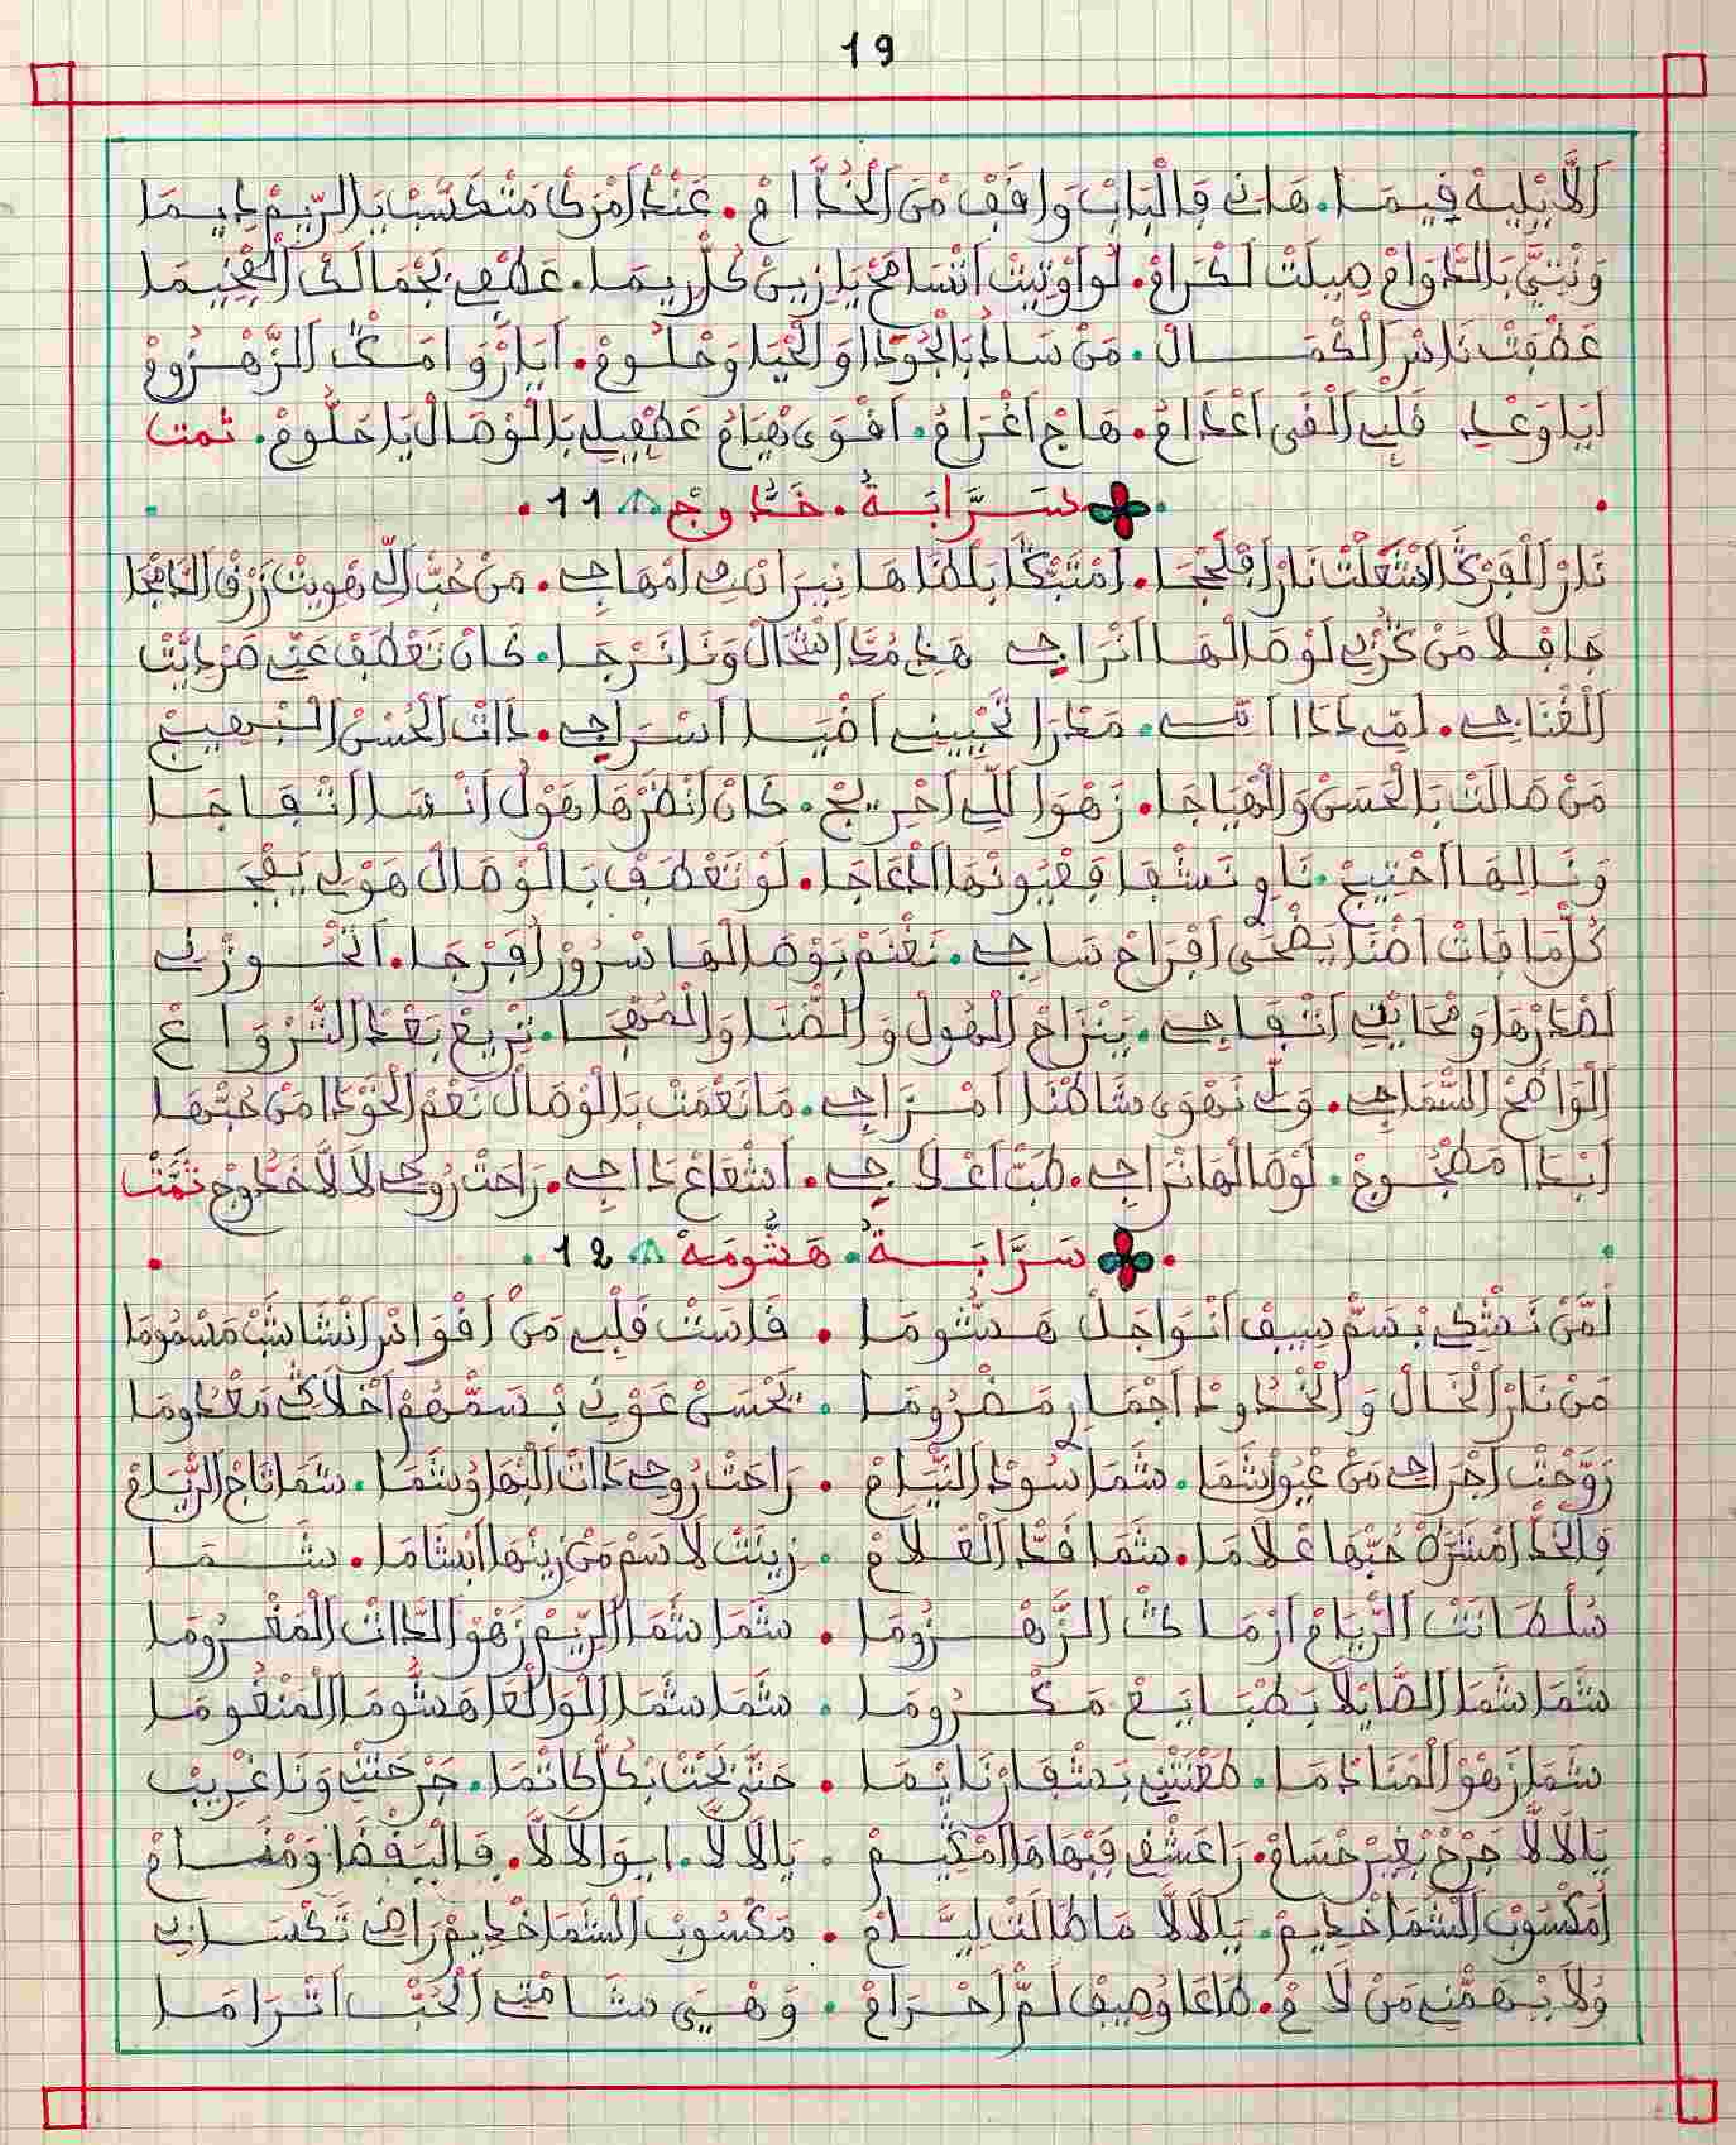 19
الَايْلِيهْ فِيمَا. هَانِي فَالْبَابْ وَاقَفْ مَنْ الْخُدَّامْ. عَنْدْ أَمْرَكْ مَتْكَسَّبْ يَا الرِّيمْ دِيمَا
وَنْتِيَّ بَالدْوَامْ صِيلَتْ لَكْرَامْ. لَوَاوْتِيتْ اتْسَامَحْ يَا زِينْ كُلّْ رِيمَا. عَطْفِي بَجْمَالَكْ الْفْخِيمَا
عَطْفَتْ نَاسْ الْكْمَالْ. مَنْ سَادُ بَالْجُودْ اوَالْحْيَا وَحْلُومْ. أَيَا رْوَامَكْ الزَّهْزُومْ
أَيَا وَعْدِي قَلْبِي الْقَى أَعْدَامُ. هَاجْ أَغْرَامُ. أَقْوَى هْيَامُ عَطْفِيلِي بَالْوْصَالْ يَا حَلُّومْ. تمت
سَرَّابَةُ. خَدُّوجْ 11.
نَارْ الْفَرْكَ اشْتَعْلَتْ نَارْ أَفْلَجَّا. أَمْتَبْكَ بَلْطَاهَا نِيرَانْ فِي أَمْهَاجِي. مَنْ حُبّْ الِّي هْوِيتْ زَرْقْ الدَّامْجَا
جَافْلَا مَنْ كَرْبِي لَوْصَالْهَا أَتْرَاجِي هَذِي مُدَّا اشْحَالْ وَنَا نَرْجَا. كَانْ تَعْطَفْ عَنِّي ضَرْ ايَتْ
الْغْنَاجِي. أَمِّي دَدَا أَنِّي. مَعْدَرَا تَحْيِينِي أَضْيَا اسْرَاجِي. ذَاتْ الْحُسْنْ الْبْهِيجْ
مَنْ صَالَتْ بَالْحَسْنْ وَالْهْيَاجَا. زَهْوَا لَلِّي أَحْرِيجْ. كَانْ أَنْظَرْهَا هَوْلْ أَنْسَا اتْفَاجَا
وَنَا لِيهَا أَحْتِيجْ. نَاوِي نَشْفَا فَعْيُونْهَا الدْعَاجَا. لَوْ تَعْطَفْ بَالْوْصَالْ هَوْلِي يَفْجَا
كُلّْ مَا فَاتْ أَضْنَا يَضْحَى أَفْرَاحْ سَاجِي. نَغْنَمْ بَوْصَالْهَا سْرُورْ أَفَرْجَا. أَتْحُوزْنِي
لَصْدَرْهَا وَمْحَايْنِي اتْفَاجِي. يَنْزَاحْ الْهُولْ وَالضْنَا وَالْمُهْجَا. تْرِيعْ بَعْدْ التَّرْوَاعْ
الْوَاضَحْ السْمَاجِي. وَلِّي نَهْوَى شَاطْنَا أَمْزَاجِي. مَا نَعْمَتْ بَالْوْصَالْ نَعْمْ الْخَوْدَا مَنْ حُبّْهَا
أَبْدَا مَطْجُوجْ. لَوْصَالْهَا نْرَاجِي. طَبّْ أَعْلَاجِي. أَشْعَاعْ دَاجِي. رَاحَتْ رُوحِي لَالَّا خَدُّوجْ تَمَّتْ
سَرَّابَةُ. هَشُّومَةْ 12
لَمَّنْ نَشْكِي بْسَمّْ سِيفْ أَنْوَاجَلْ هَشُّومَا . قَاسَتْ قَلْبِي مَنْ أَقْوَاسْ انْشَاشَبْ مَسْمُومَا
مَنْ نَارْ الْخَالْ وَالْخْدُودْ أَجْمَارْ مَضْرُومَا . يَحْسَنْ عَوْنِي بْسَمّْهُمْ أَخْلَاكِي مَعْدُومَا
رَوَّحْتْ أَجْرَاحِي مَنْ عْيُونْ شَمَا. شَمَا سُودْ النْيَامْ . رَاحَتْ رُوحِي ذَاتْ الْبْهَا وُشَمَا. شَمَا تَاجْ الرْيَامْ
فَالْخَدّْ أَمْشَرَّطْ حُبّْهَا عْلَامَا. شَمَا قَدّْ الْعْلَامْ . زِينَتْ لَاسَمْ مَنْ زِينْهَا أَبْشَامَا. شَمَا
سُلْطَانَتْ الرْيَامْ أَرْمَاكْ الزَّهْزُومَا . شَمَا شَمَا الرِّيمْ زَهْوْ الذَّاتْ الْمَغْرُومَا
شَمَا شَمَا الصَّايْلَا بَطْبَايَعْ مَكْرُومَا . شَمَا شَمَا الْوَالْعَا هَشُّومَا الْمَنْغُومَا
شَمَا زَهْوْ الْمْنَادْمَا. طَعْنَتْنِي بَشْفَارْ نَايْمَا . حَتَّى بَحْتْ بَكُلّْ كَاتْمَا. جَرْحَتْنِي وَنَا غْرِيبْ
يَالَالَّا جَرْحْ بْغِيرْ حْسَامْ. رَاعَشْقِي فَبْهَاهَا أَمْكِيمْ . يَالَالَّا. ايوَا لَالَّا. فَالْيَقْضَا وَمْنَامْ
أَمَكْسُوبْ الشَّمَا خْدِيمْ. يَلَالَّا مَا طَالَتْ لِيَّامْ . مَكْسُوبْ الشَّمَا خْدِيمْ رَاضِي تَكْسَانِي
وُلَا يْهَمّْنِي مَنْ لَامْ. طَاعَا وُصِيفْ لَمّْ أَحْرَامْ . وَهْيَ شَامْتْ الْحُبّْ اتْرَامَا